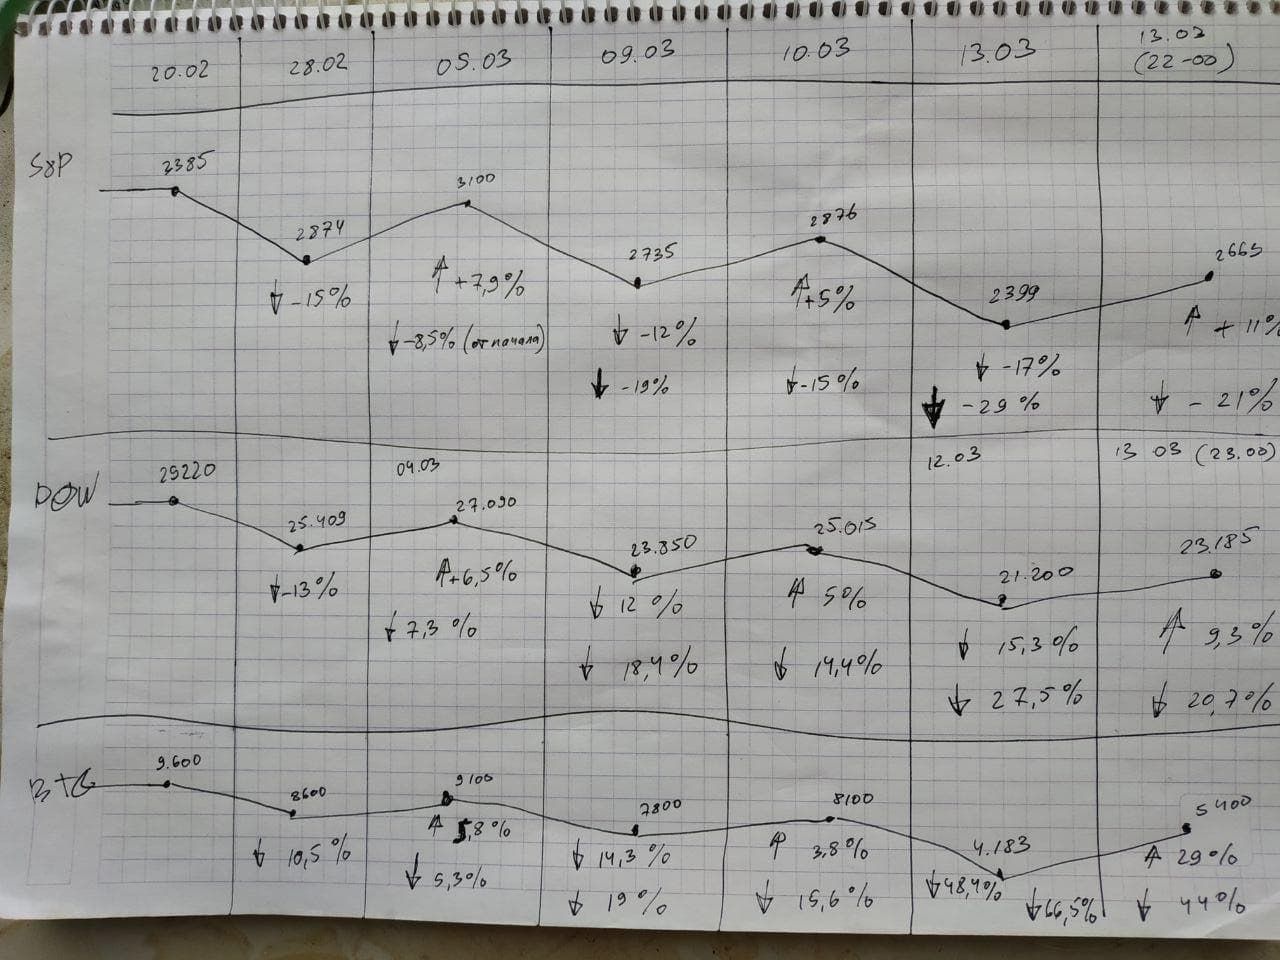 20.02 28.02 05.03 09.03 10.03 13.03 13.03
(22-00)
S&P
3385 2874 3100 2735 2876 2399 2663
↓ -15% ↑ +7,9% ↓ -12% ↑ +5% ↓ -17% ↑ + 11%
↓ -8,5% (от начала) ↓ -19% ↓ -15% ↓ -29% ↓ - 21%
04.03 12.03 13 03 (23.00)
DOW
29220 25.409 27.090 23.850 25.015 21.200 23.185
↓ -13% ↑ +6,5% ↓ 12% ↑ 5% ↓ 15,3% ↑ 9,3%
↓ 7,3% ↓ 18,4% ↓ 14,4% ↓ 27,5% ↓ 20,7%
BTC
9.600 8600 9100 7800 8100 4.183 5400
↓ 10,5% ↑ 5,8% ↓ 14,3% ↑ 3,8% ↓ 48,4% ↑ 29%
↓ 5,3% ↓ 19% ↓ 15,6% ↓ 66,5% ↓ 44%